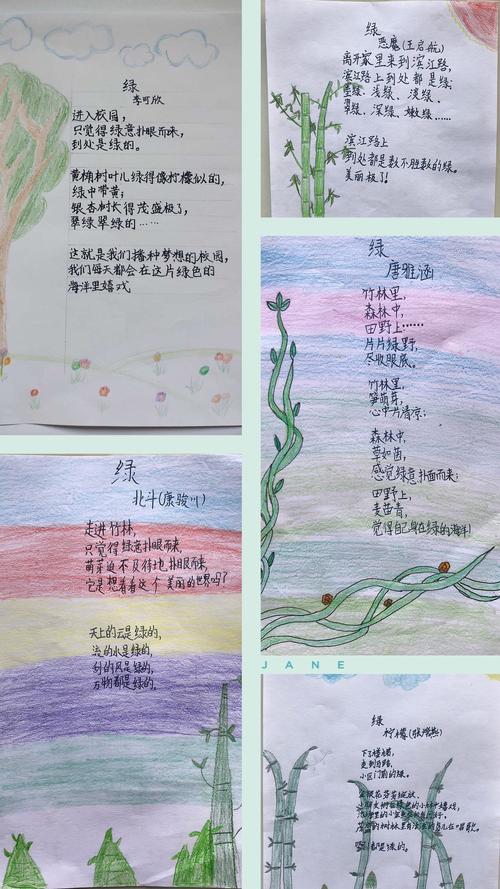 绿
李可欣
进入校园，
只觉得绿意扑眼而来，
到处是绿的。
黄桷树叶儿绿得像柠檬似的，
绿中带黄；
银杏树长得茂盛极了，
翠绿翠绿的……
这就是我们播种梦想的校园，
我们每天都会在这片绿色的
海洋里嬉戏
绿
恶魔(王启航)
离开家里来到滨江路，
滨江路上到处都是绿；
墨绿、浅绿、淡绿、
翠绿、深绿、嫩绿……
滨江路上
到处都是数不胜数的绿。
美丽极了！
绿
唐雅涵
竹林里，
森林中，
田野上……
片片绿野，
尽收眼底。
竹林里，
笋萌芽，
心中片清凉；
森林中，
草如茵，
感觉绿意扑面而来；
田野上，
麦苗青，
觉得自己身在绿的海洋！
绿
北斗(康骏川)
走进竹林，
只觉得绿意扑眼而来，
萌芽迫不及待地扑眼而来，
它是想看看这个美丽的世界吗？
天上的云是绿的，
流的水是绿的，
刮的风是绿的，
万物都是绿的。
JANE
绿
柠檬
下了楼梯，
走到马路，
小区门前的绿。
花芬芳绽放、
在绿色的小林中嬉戏，
的树林里有
都是绿的。